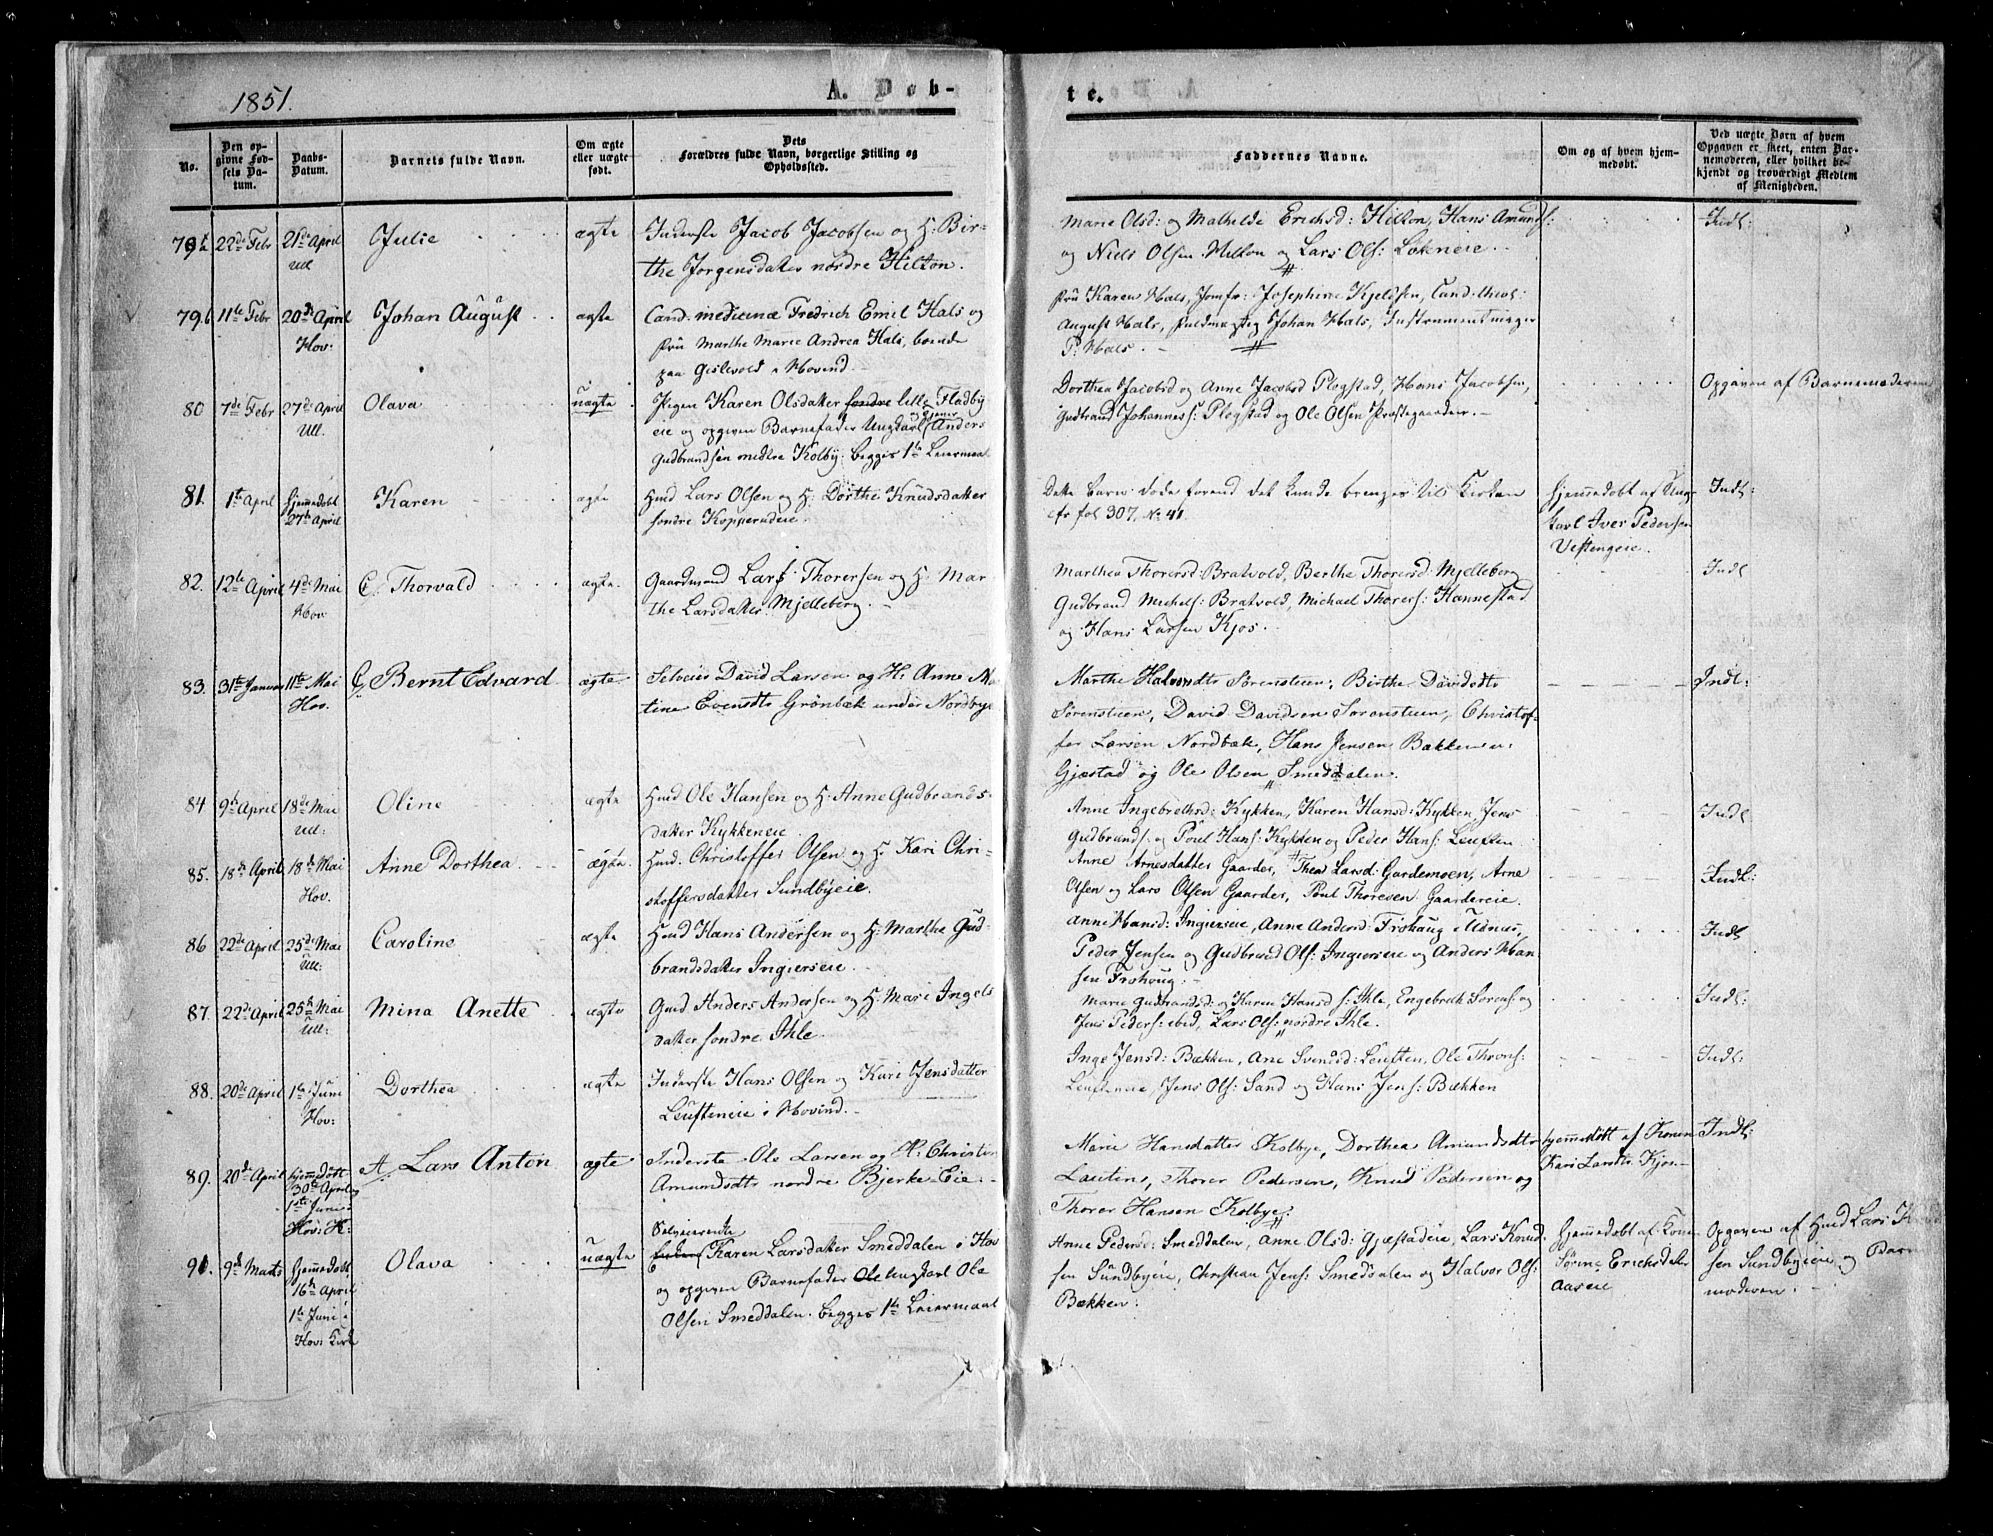 1851.
A. Døb-
te.
No.
Den op-
givne Fød-
sels Da-
tum.
Daabs-
Datum.
Barnets fulde Navn.
Om ægte
eller uægte
født.
Dets
Forældres fulde Navn, borgerlige Stilling og
Opholdssted.
Faddernes Navne.
Om og af hvem hjem-
medøbt.
Ved uægte Børn af hvem
Opgaven er skeet, enten Bar-
nemoderen, eller hvilket be-
kjendt og troværdigt Medlem
af Menigheden.
79a 22de Febr 21de April
Ull
Julie
ægte
Inderste Jacob Jacobsen og H: Bir-
the Jørgensdatter nordre Hilton.
Marie Olsd: og Mathilde Erichsd: Hilton, Hans Amunds:
og Niels Olsen Hilton og Lars Ols: Løkneie
Indl:
79b 11te Febr 20de April
Hov:
Johan August
ægte
Cand: medicinæ Fredrich Emil Hals og
Fru Marthe Marie Andrea Hals, boende
paa Gislevold i Hovind.
Fru Karen Hals, Jomfr: Josephine Kjeldsen, Cand: theol:
August Hals, Fuldmægtig Johan Hals, Instrumentmager
P: Hals.
80 7de Febr 27de April
Ull.
Olava
uægte
Pigen Karen Olsdatter søndre lille Fladby
eie og opgiven Barnefader Ungkarl og Tjener Anders
Gudbrandsen mellre Kolby. begges 1te Leiermaal
Dorthea Jacobsd og Anne Jacobsd Plogstad, Hans Jacobsen,
Gudbrand Johanness: Plogstad og Ole Olsen Præstegaarden.
Opgaven af Barnemoderen
81. 1te April hjemmedøbt
27de April
Karen
ægte
Hmd Lars Olsen og H: Dorthe Knudsdatter
søndre Kopperudeie.
Dette Barn døde forend det kunde bringes til Kirken
cfr fol 307, No 41.
hjemmedøbt af Ung-
karl Iver Pedersen
Vestengeie.
Indl:
82. 12te April 4de Mai
Hov
C. Thorvald
ægte.
Gaardmand Lars Thorersen og H: Mar
the Larsdatter Mjelleberg.
Marthea Thorersd: Bratvold, Berthe Thorersd: Mjelleberg
Gudbrand Michels: Bratvold, Michael Thorers: Hannestad
og Hans Larsen Kjos.
Indl
83. 31te Januar 11te Mai
Hov.
C. Bernt Edvard
ægte
Selveier David Larsen og H: Anne Ma
tine Evensdtr Grønbæk under Nordbye
Marthe Halvorsdtr Sørensteen, Birthe Davidsdtr
Sørensteen, David Davidsen Sørensteen, Christof-
fer Larsen Nordbæk, Hans Jensen Bækken
Gjæstad og Ole Olsen Smeddalen.
Indl:
84 9de April 18de Mai
Ull:
Oline
ægte
Hmd Ole Hansen og H: Anne Gudbrands
datter Kykkeneie
Anne Ingebrethsd: Kykken, Karen Hansd: Kykken Jens
Gudbrands: og Poul Hans: Kykken og Peder Hans: Leuften
Indl
85. 18de April 18de Mai
Hov.
Anne Dorthea
ægte
Hmd. Christoffer Olsen og H: Kari Chri-
stoffersdatter Sundbyeie.
Anne Arnesdatter Gaarder, Thea Larsd: Gardemoen, Arne
Olsen og Lars Olsen Gaarder, Poul Thoresen Gaardereie.
Indl:
86 22de April 25de Mai
Ull:
Caroline
ægte
Hmd Hans Andersen og H: Marthe Gud-
brandsdatter Ingierseie
Anne Hansd: Ingierseie, Anne Andersd: Frohoug i Udnæs,
Peder Jensen og Gudbrand Ols: Ingierseie og Anders Han-
sen Frohoug.
Indl
87. 22de April 25de Mai
Ull:
Mina Anette
ægte
Gmd Anders Andersen og H: Mari Ingels
datter søndre Ihle.
Marie Gudbrandsd: og Karen Hansd s: Ihle, Engebreth Sørens: og
Jens Peders: ibid, Lars Ols: nordre Ihle.
Indl:
88. 20de April 1te Juni
Hov:
Dorthea
ægte
Inderste Hans Olsen og Kari Jensdatter
Leufteneie i Hovind.
Inge Jensd: Bækken, Ane Svendsd: Leuften, Ole Throns:
Leufteneie, Jens Ols: Sand og Hans Jens: Bækken
Indl:
89. 20de April hjemmedøbt
30de April og
1ste Juni
Hov: K:
A. Lars Anton
ægte
Inderste Ole Larsen og H: Christi
Amundsdtr nordre Bjerke-Eie.
Marie Hansdatter Kolbye, Dorthea Amundsdtr
Lautens, Thorer Pedersen, Knud Pedersen og
Thorer Hansen Kolbye.
hjemmedøbt af Konen
Kari Larsdtr Kjos
Indl:
90. 9de Marts hjemmedøbt
16de April
1te Juni i
Hov: Kirke
Olava
uægte
Selveierenke
Karen Larsdatter Smeddalen i Hov
og opgiven Barnefader Ole Ungkarl Ole
Olsen Smeddalen. begges 1te Leiermaal
Anne Pedersd: Smeddalen, Anne Olsd: Gjæstadeie, Lars Knud
sen Sundbyeie, Christian Jens: Smeddalen og Halvor Ols:
Bækken:
hjemmedøbt af Konen
Sørine Erichsdatter
Aaseie
Opgaven af Hmd Lars Knud
sen Sundbyeie og Barne
moderen.